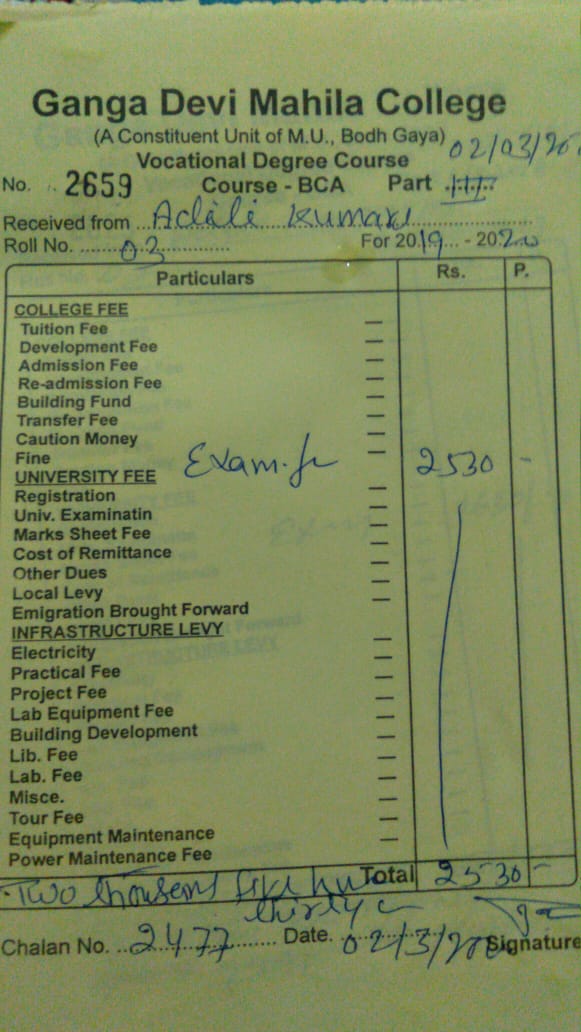 Ganga Devi Mahila College
(A Constituent Unit of M.U., Bodh Gaya)
02/03/20
Vocational Degree Course
No. 2659 Course - BCA Part III
Received from Aditi Kumari
Roll No. 03 For 2019 - 2020
Particulars Rs. P.
COLLEGE FEE
Tuition Fee —
Development Fee —
Admission Fee —
Re-admission Fee —
Building Fund —
Transfer Fee —
Caution Money —
Fine —
Exam. fee 2530 -
UNIVERSITY FEE
Registration —
Univ. Examinatin —
Marks Sheet Fee —
Cost of Remittance —
Other Dues —
Local Levy —
Emigration Brought Forward
INFRASTRUCTURE LEVY
Electricity —
Practical Fee —
Project Fee —
Lab Equipment Fee —
Building Development —
Lib. Fee —
Lab. Fee —
Misce. —
Tour Fee —
Equipment Maintenance —
Power Maintenance Fee
Two thousand five hun Total 2530 -
thirty
Chalan No. 2477 Date. 02/3/20 Signature